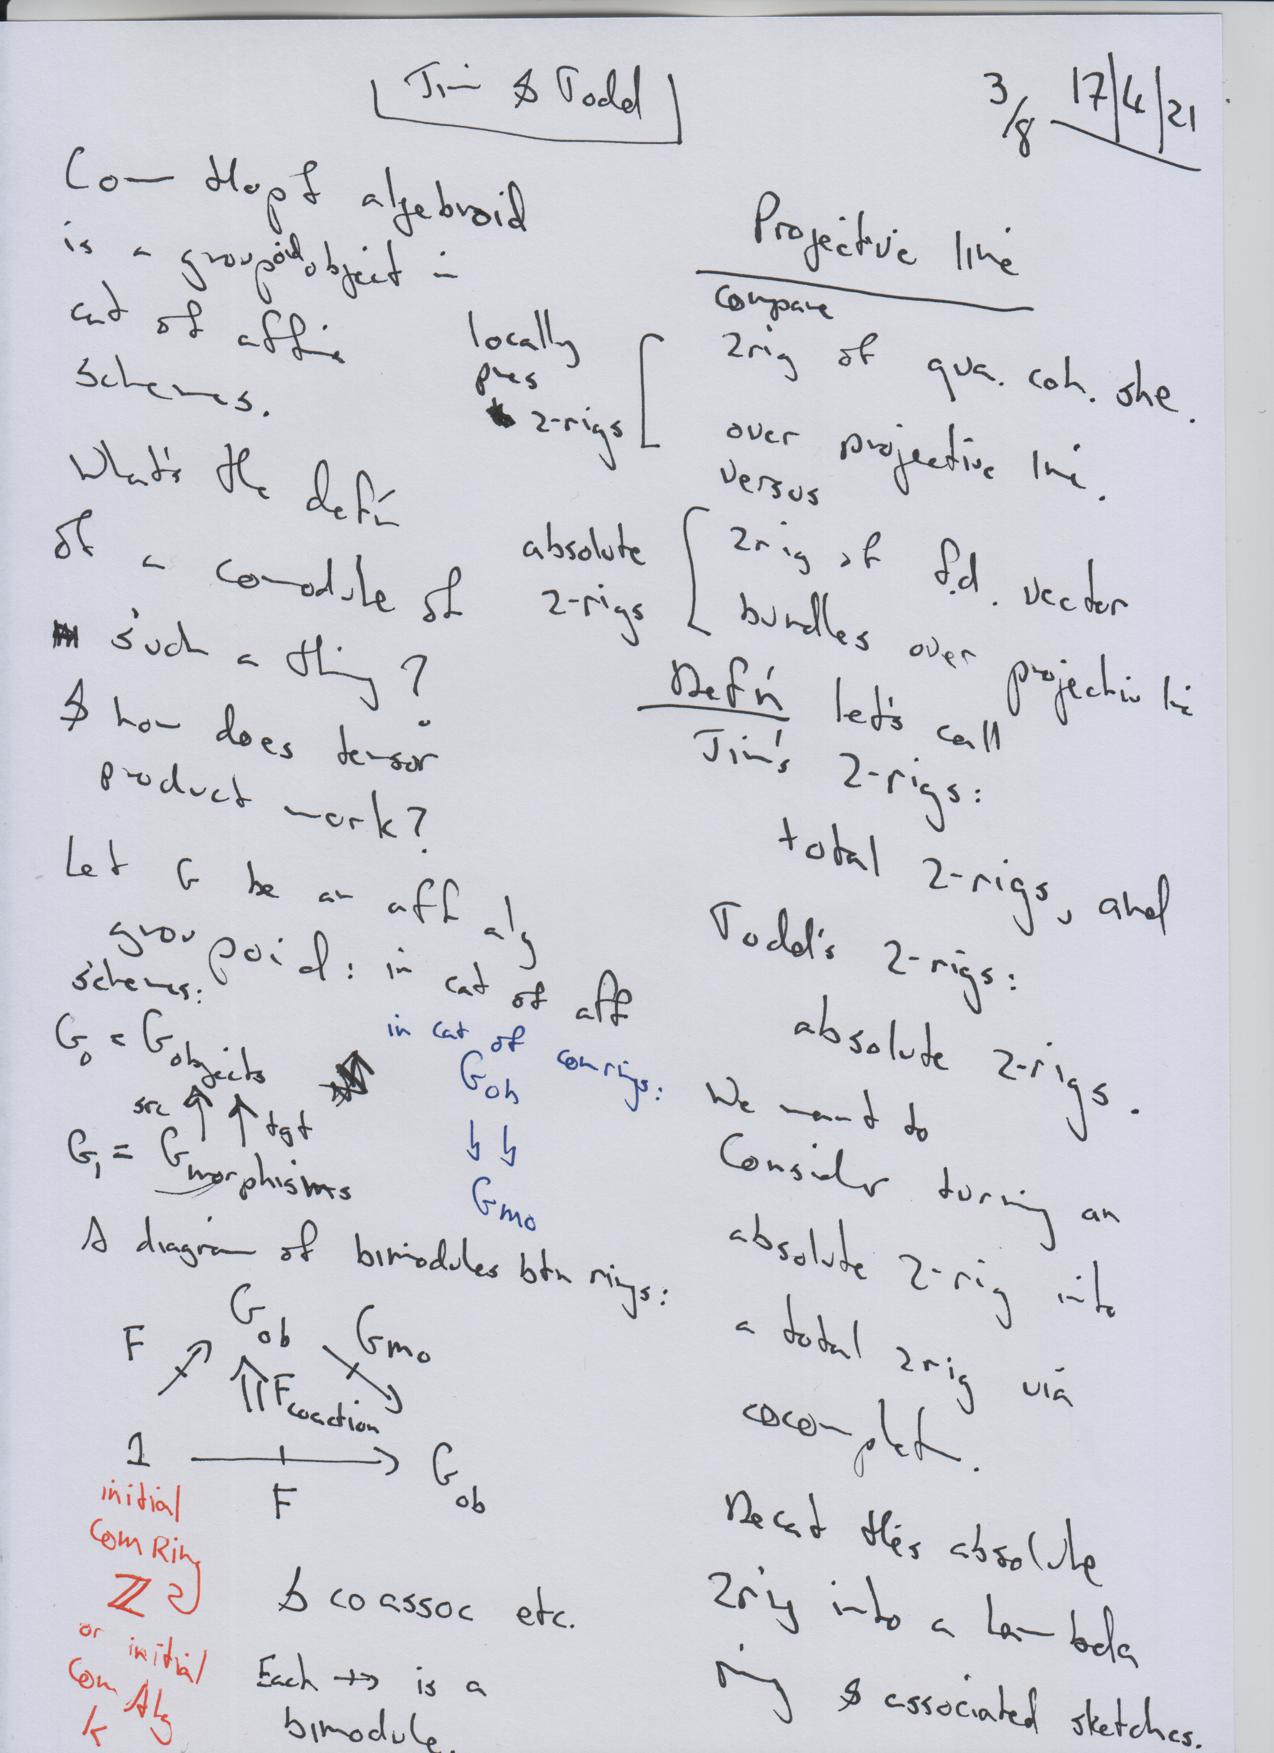 Jim & Todd
3/8 17/4/21
Com Hopf algebroid
is a groupoid object in
cat of affine
schemes.
What's the def'n
of a comodule of
such a thing?
& how does tensor
product work?
Let G be an aff alg
groupoid: in cat of aff
schemes:
G₀ = G objects
src ↑ ↑ tgt
G₁ = G morphisms
in cat of comrings:
G ob
↓ ↓
G mo
A diagram of bimodules btn rings:
G ob
F
G mo
F coaction
1
G ob
F
initial
Com Ring
ℤ
or initial
Com Alg
k
& coassoc etc.
Each ⇸ is a
bimodule.
Projective line
compare
locally
pres
2-rigs
2rig of qua. coh. she.
over projective line.
versus
absolute
2-rigs
2rig of f.d. vector
bundles over projective line
Def'n let's call
Jim's 2-rigs:
total 2-rigs, and
Todd's 2-rigs:
absolute 2-rigs.
We want to
Consider turning an
absolute 2-rig into
a total 2rig via
cocomplet'n.
Decat this absolute
2rig into a lambda
ring & associated sketches.